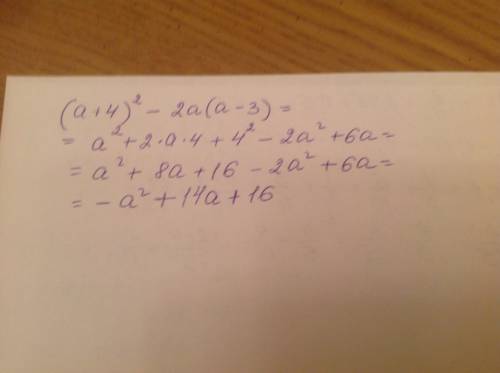 (a+4)² - 2a(a-3) =
= a² + 2·a·4 + 4² - 2a² + 6a =
= a² + 8a + 16 - 2a² + 6a =
= - a² + 14a + 16